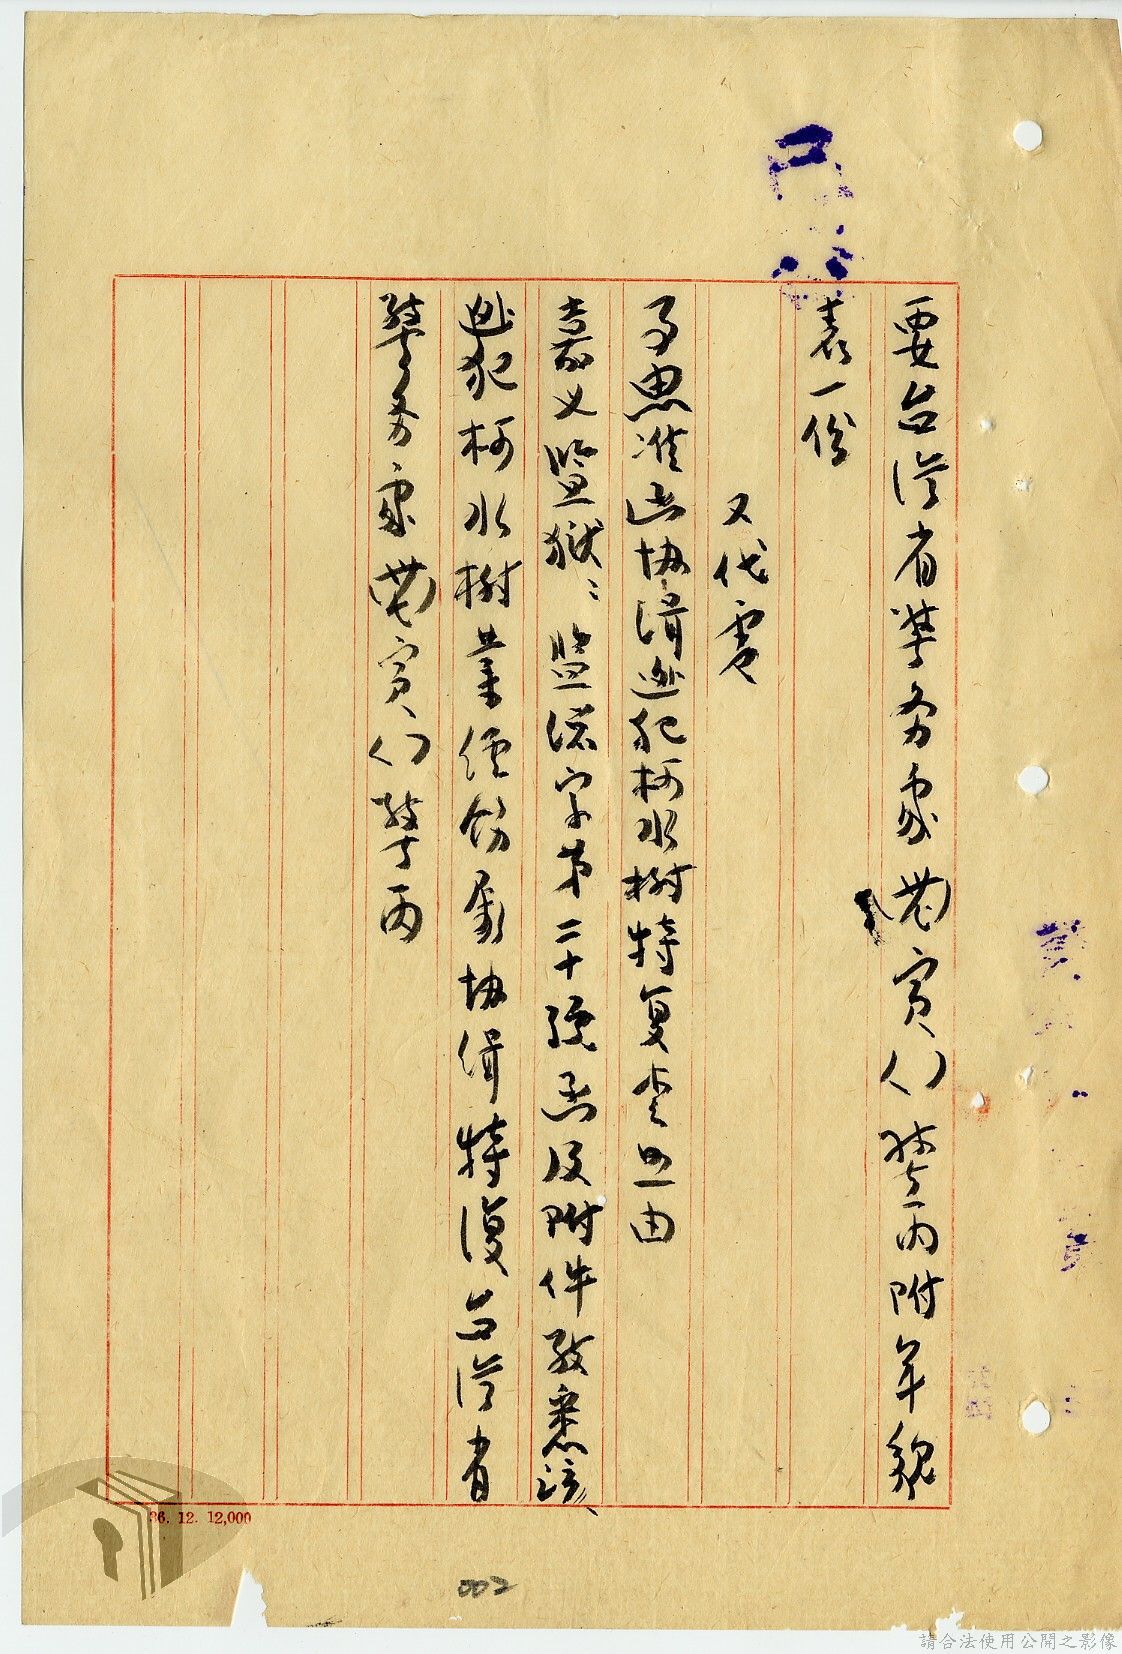 要台灣省警務處(   )寅(  )警丙附年貌
表一份
又代電
事由准函協緝逃犯柯水樹特复查照由
嘉义監獄：監總字第二十號函及附件敬悉該
逃犯柯水樹業經飭屬協緝特復台灣省
警务處(   )寅(  )警丙
36. 12. 12,000
002
請合法使用公開之影像